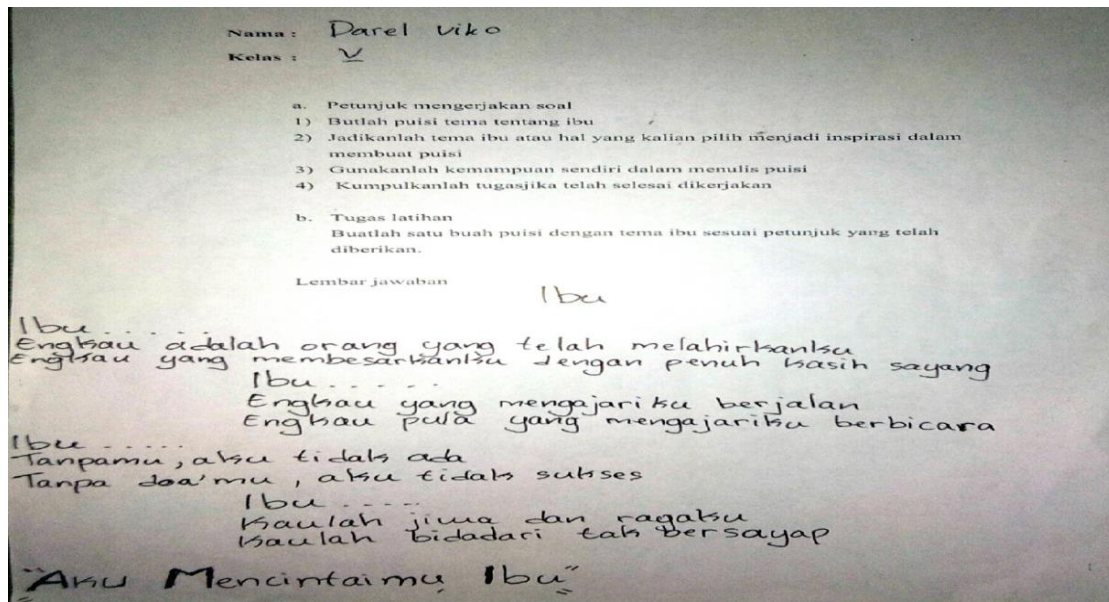 Nama : Darel viko
Kelas : V
a. Petunjuk mengerjakan soal
1) Butlah puisi tema tentang ibu
2) Jadikanlah tema ibu atau hal yang kalian pilih menjadi inspirasi dalam
membuat puisi
3) Gunakanlah kemampuan sendiri dalam menulis puisi
4) Kumpulkanlah tugasjika telah selesai dikerjakan
b. Tugas latihan
Buatlah satu buah puisi dengan tema ibu sesuai petunjuk yang telah
diberikan.
Lembar jawaban
Ibu
Ibu . . . . .
Engkau adalah orang yang telah melahirkanku
Engkau yang membesarkanku dengan penuh kasih sayang
Ibu . . . . .
Engkau yang mengajariku berjalan
Engkau pula yang mengajariku berbicara
Ibu . . . . .
Tanpamu, aku tidak ada
Tanpa doa'mu, aku tidak sukses
Ibu . . . .
Kaulah jiwa dan ragaku
Kaulah bidadari tak bersayap
"Aku Mencintaimu Ibu"